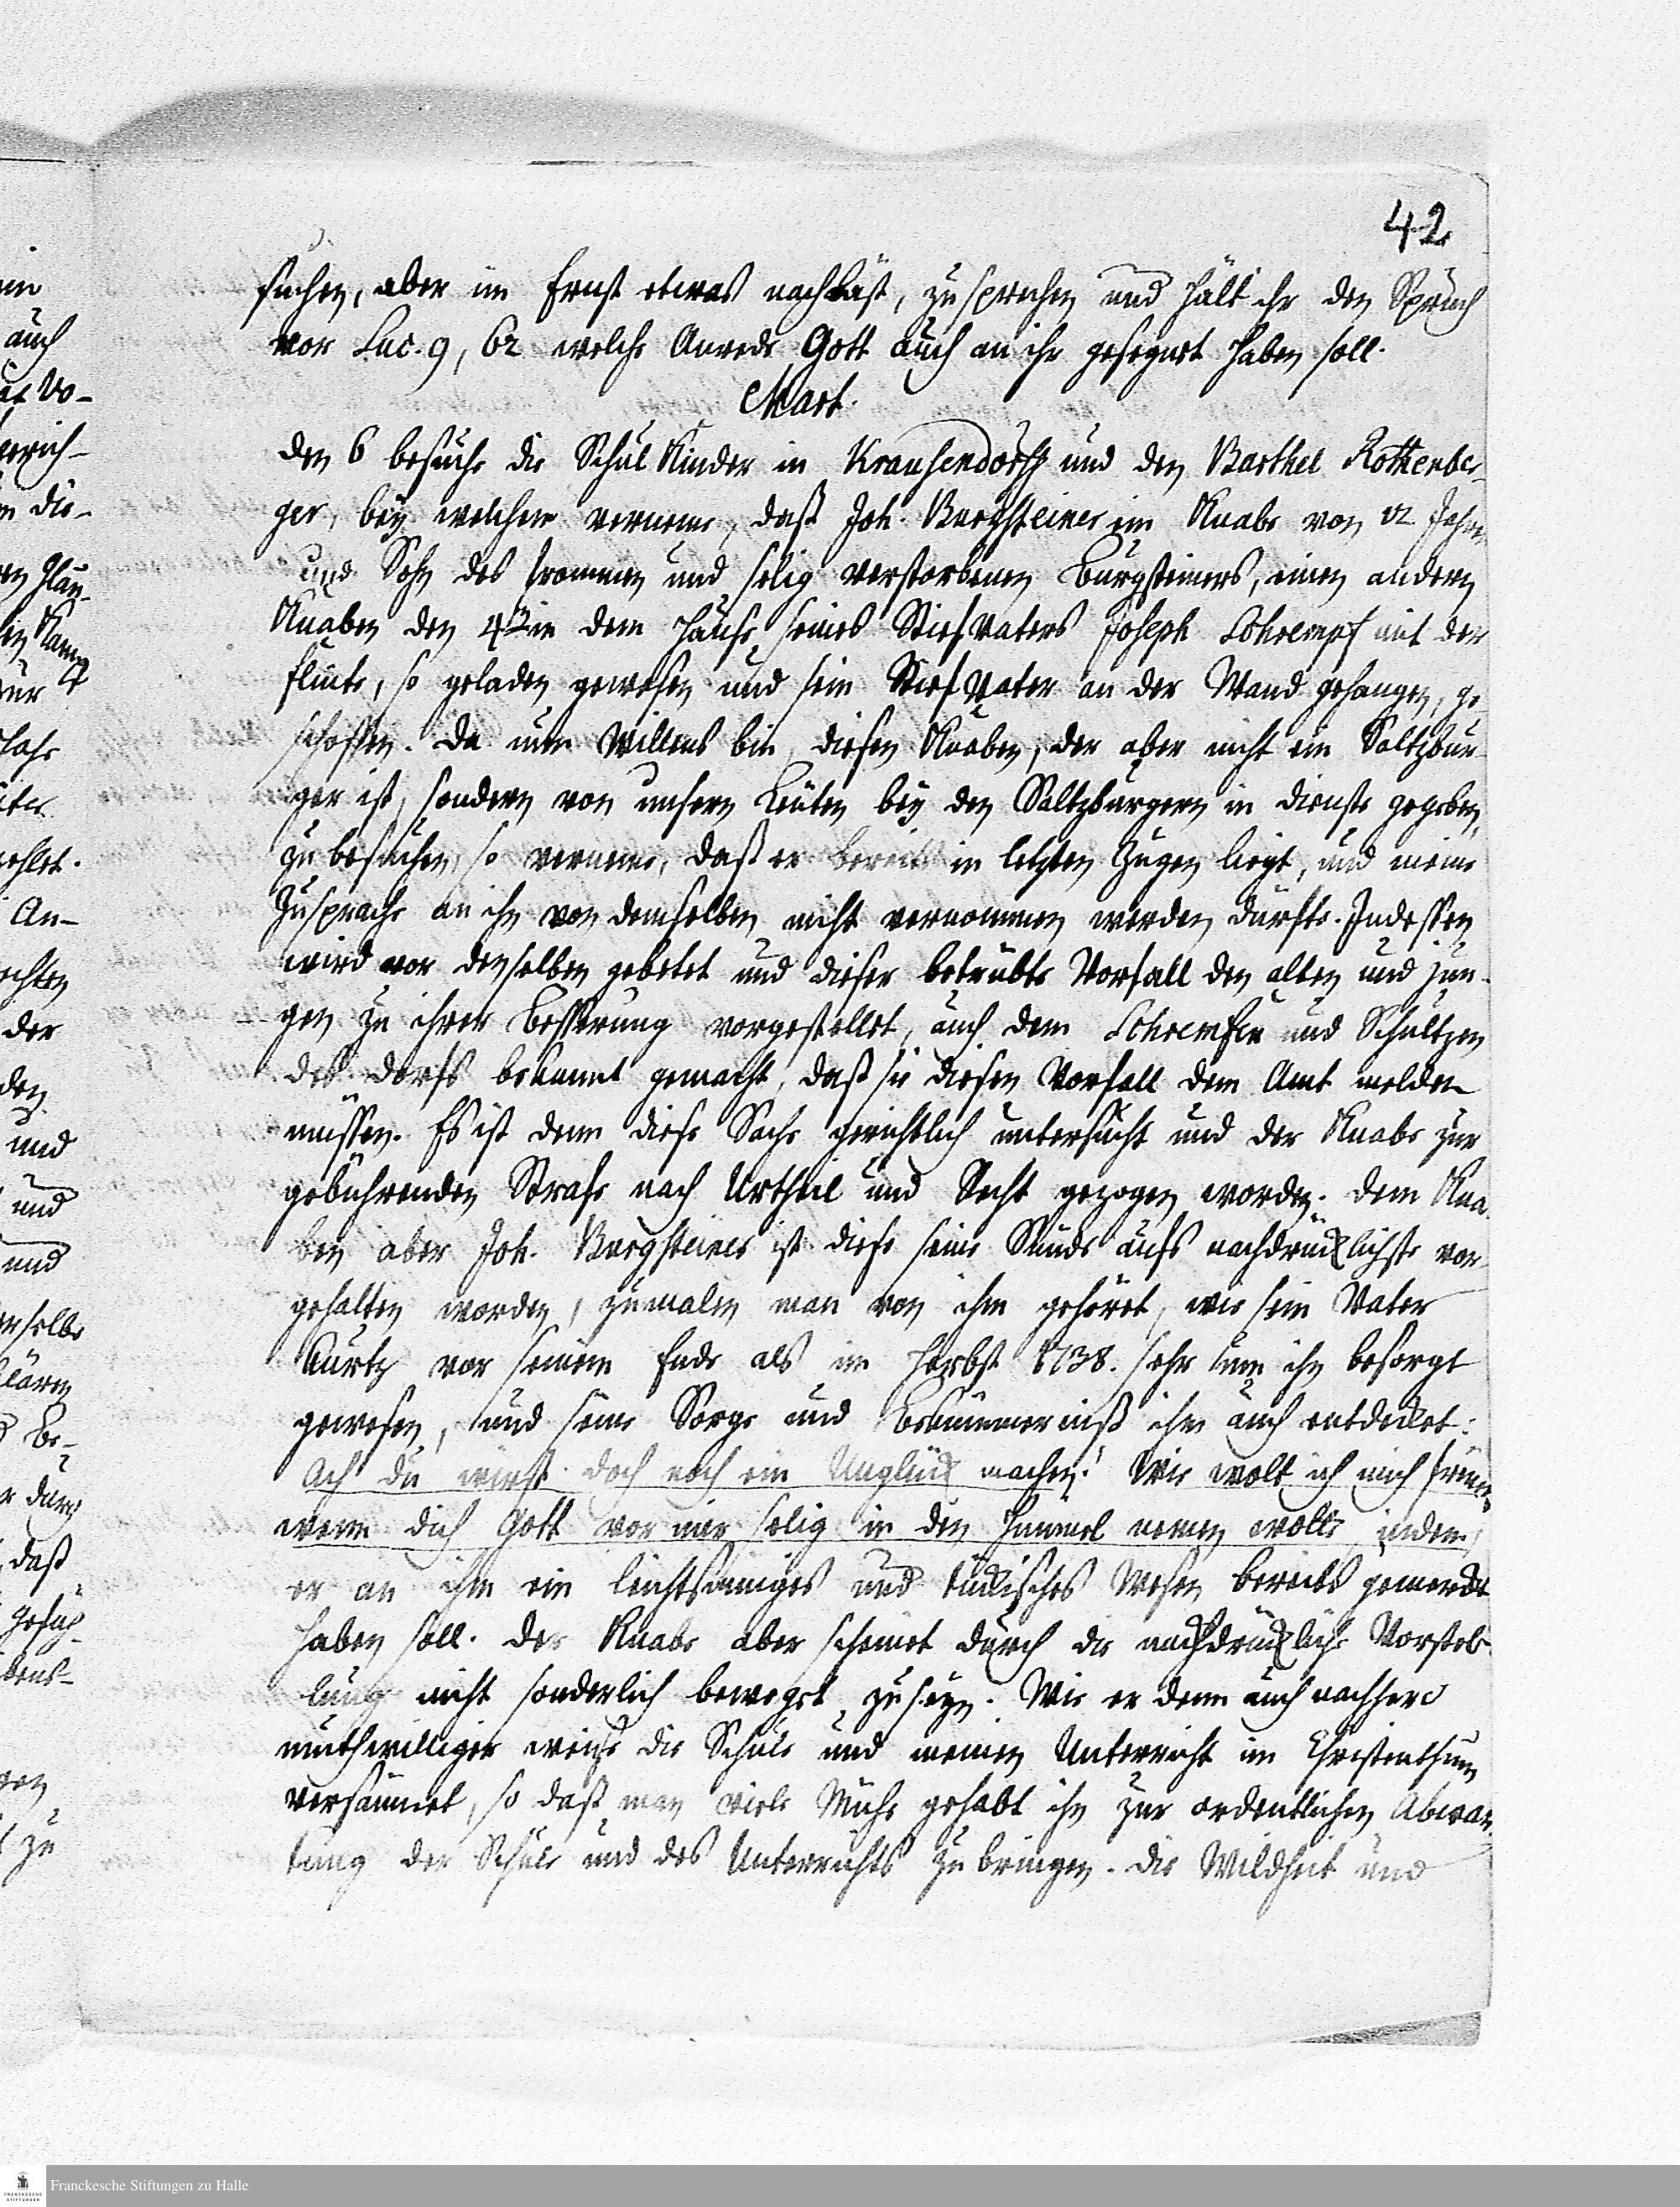 42
suchen, aber im Ernst etwas nachläst, zu sprechen und hält ihr den Spruch
vor Luc. 9, 62 welche Anrede Gott auch an ihr gesegnet haben soll.
Mart.
den 6 besuche die Schul Kinder in Krausendorff und den Barthel Rothenber-
ger, bey welchem verneme, daß Joh. Burgsteiner ein Knabe von 12 Jahr
und Sohn des frommen und selig verstorbenen Burgsteiners, einen andern
Knaben den 4 in dem Hause seines Stief Vaters Joseph Lohrempf mit der
flinte, so geladen gewesen und sein Stief Vater an der Wand gehangen, ge-
schossen. Da nun Willens bin diesen Knaben, der aber nicht ein Saltzbur-
ger ist, sondern von unsern Leuten bey den Saltzburgern in dienste gegeben,
zu besuchen, so verneme, daß er bereits in letzten Zügen liegt, und meine
Zusprache an ihn von demselben nicht vernommen werden dürfte. Indessen
wird vor denselben gebetet und dieser betrübte Vorfall den alten und jun-
gen zu ihrer Besserung vorgestellet, auch dem Lohrempfen und Schultzen
des dorfs bekannt gemacht, daß sie diesen Vorfall dem Amt melden
müssen. Es ist denn diese Sache gerichtlich untersucht und der Knabe zur
gebührenden Strafe nach Urtheil und Recht gezogen worden. dem Kna-
ben aber Joh. Burgsteiner ist diese seine Sünde aufs nachdrücklichste vor-
gehalten worden, zumalen man von ihm gehöret, wie sein Vater
kurtz vor seinem Ende als im Herbst 1738. sehr um ihn besorgt
gewesen, und seine Sorge und Bekümmerniß ihm auch entdecket:
Ach du wirst doch noch ein Unglück machen! Wie wolt ich mich freuen
wenn dich Gott vor mir selig in den Himmel nemen wolte, indem
er an ihm ein leichtsinniges und tückisches Wesen bereits gemerckt
haben soll. Der Knabe aber scheinet durch die nachdrückliche Vorstel-
lung nicht sonderlich beweget zu seyn. Wie er denn auch nachhero
muthwilliger weise die Schule und meinen Unterricht im Christenthum
versäumet, so daß man viele Mühe gehabt ihn zur ordentlichen Abwar-
tung der Schule und des Unterrichts zu bringen. Die Wildheit und
Franckesche Stiftungen zu Halle